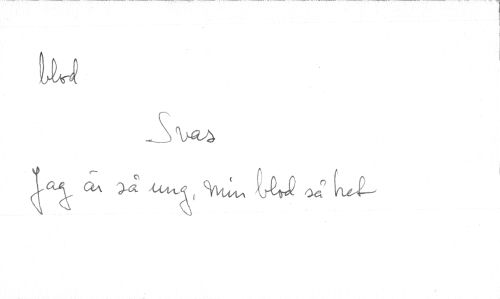 blod
Svas
Jag är så ung, min blod så het